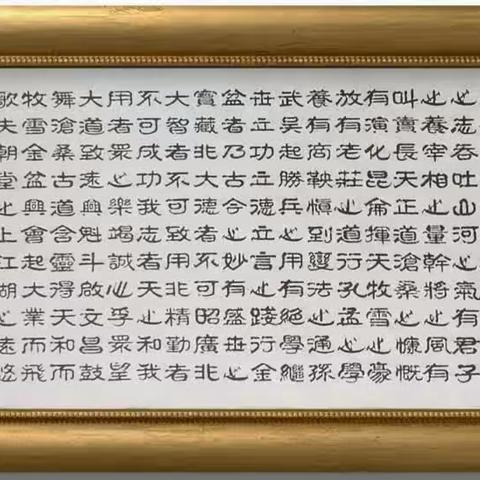 心志吞吐山河之氣有君子
心養宰相之量幹將之風有
叫賣長天正道滄桑之慷慨
有演化昆侖揮天牧雪之豪
放有老莊之道行孔孟之學
養有商鞅慎到變法之通孫
武吳起勝兵之用有絕學繼
世立功立德立言之踐行金
盆者乃古今之妙有盛世之
寶藏北大德者不可昭廣北
大智者不可致用北精勤者
不可成功我志者天之和我
用者眾心樂竭誠心乎眾望
大道致速興魁斗啟文昌鼓
舞滄桑古道含靈得天和而
牧雪金盆興會起大業而飛
歌夫朝堂化上江湖之遠悠